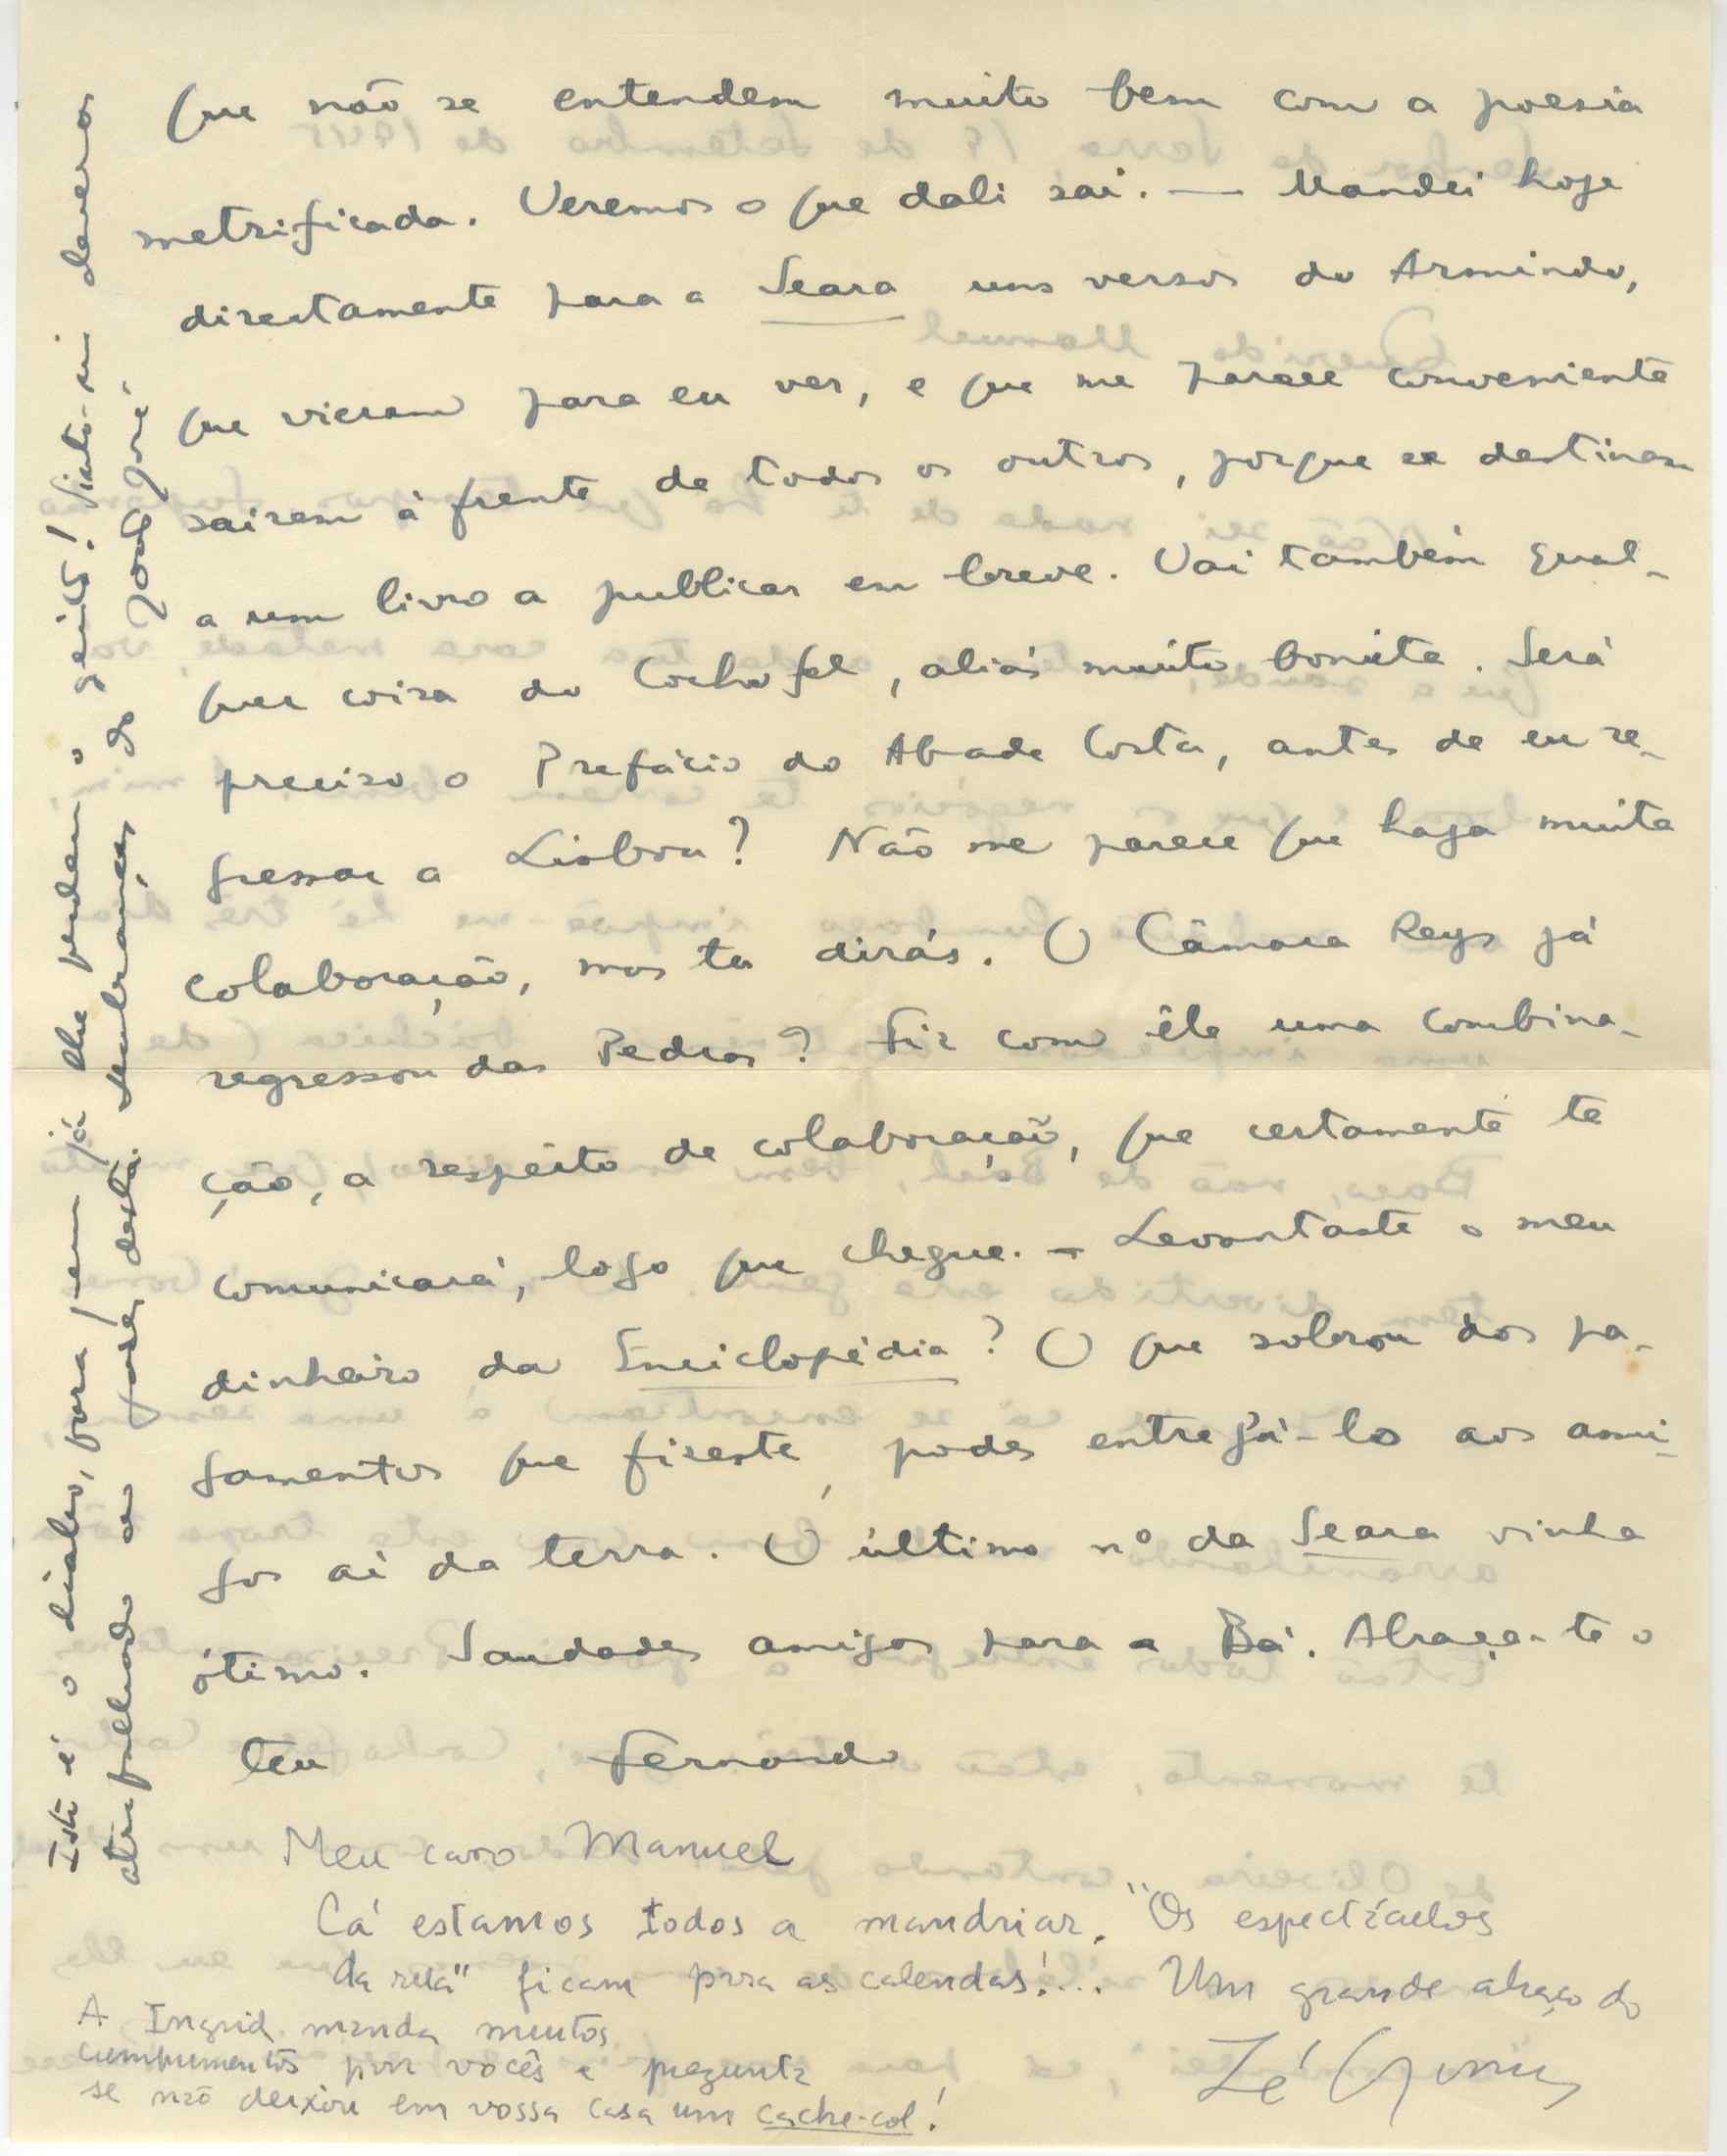 que não se entendem muito bem com a poesia
metrificada. Veremos o que dali sai. — Mandei hoje
directamente para a Seara uns versos do Armindo,
que vieram para eu ver, e que me parece conveniente
sairem à frente de todos os outros, porque se destinam
a um livro a publicar em breve. Vai também qual-
quer coisa do Cochofel, aliás muito bonita. Será
preciso o Prefácio do Abade Costa, antes de eu re-
gressar a Lisboa? Não me parece que haja muita
colaboração, mas tu dirás. O Câmara Reys já
regressou das Pedras? Fiz com êle uma combina-
ção, a respeito de colaboração, que certamente te
comunicará, logo que chegue. — Levantaste o meu
dinheiro da Enciclopédia? O que sobrou dos pa-
gamentos que fizeste, podes entregá-lo aos ami-
gos aí da terra. O último nº da Seara vinha
ótimo. Saudades amigas para a Bá. Abraça-te o
teu Fernando
Meu caro Manuel
Cá estamos todos a mandriar. "Os espectáculos
da rua" ficam pra as calendas!... Um grande abraço do
Zé Gomes
A Ingrid manda muitos
cumprimentos pra vocês e pregunta
se não deixou em vossa casa um cache-col!
Isto é o diabo, para quem já lhe perdeu o geito! Sinto-me deveras
atrapalhado ao fazer desta. Lembranças do João José.